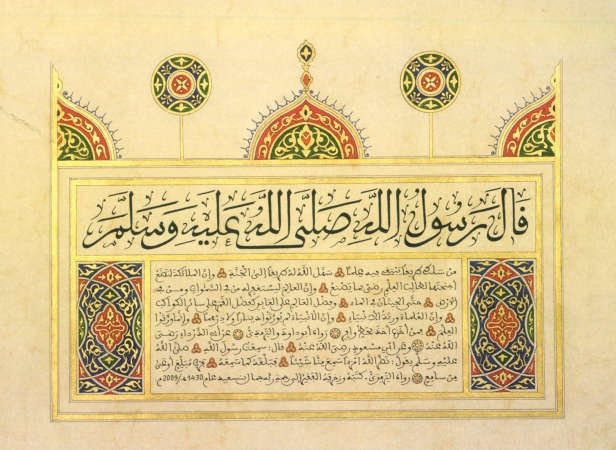 قال رسول الله صلى الله عليه وسلم
من سلك طريقا يبتغي فيه علما سهل الله له طريقا إلى الجنة وإن الملائكة لتضع
أجنحتها لطالب العلم رضى بما يصنع وإن العالم ليستغفر له من في السماوات ومن في
الأرض حتى الحيتان في الماء وفضل العالم على العابد كفضل القمر على سائر الكواكب
وإن العلماء ورثة الأنبياء وإن الأنبياء لم يورثوا دينارا ولا درهما وإنما ورثوا
العلم فمن أخذه أخذ بحظ وافر رواه أبو داود والترمذي عن أبي الدرداء رضي
الله عنه وعن ابن مسعود رضي الله عنه قال: سمعت رسول الله صلى الله
عليه وسلم يقول: نضر الله امرأ سمع منا شيئا فبلغه كما سمعه فرب مبلغ أوعى
من سامع رواه الترمذي. كتبه الفقير إلى ربه جمال بن سعيد عام 1430ه/2009م